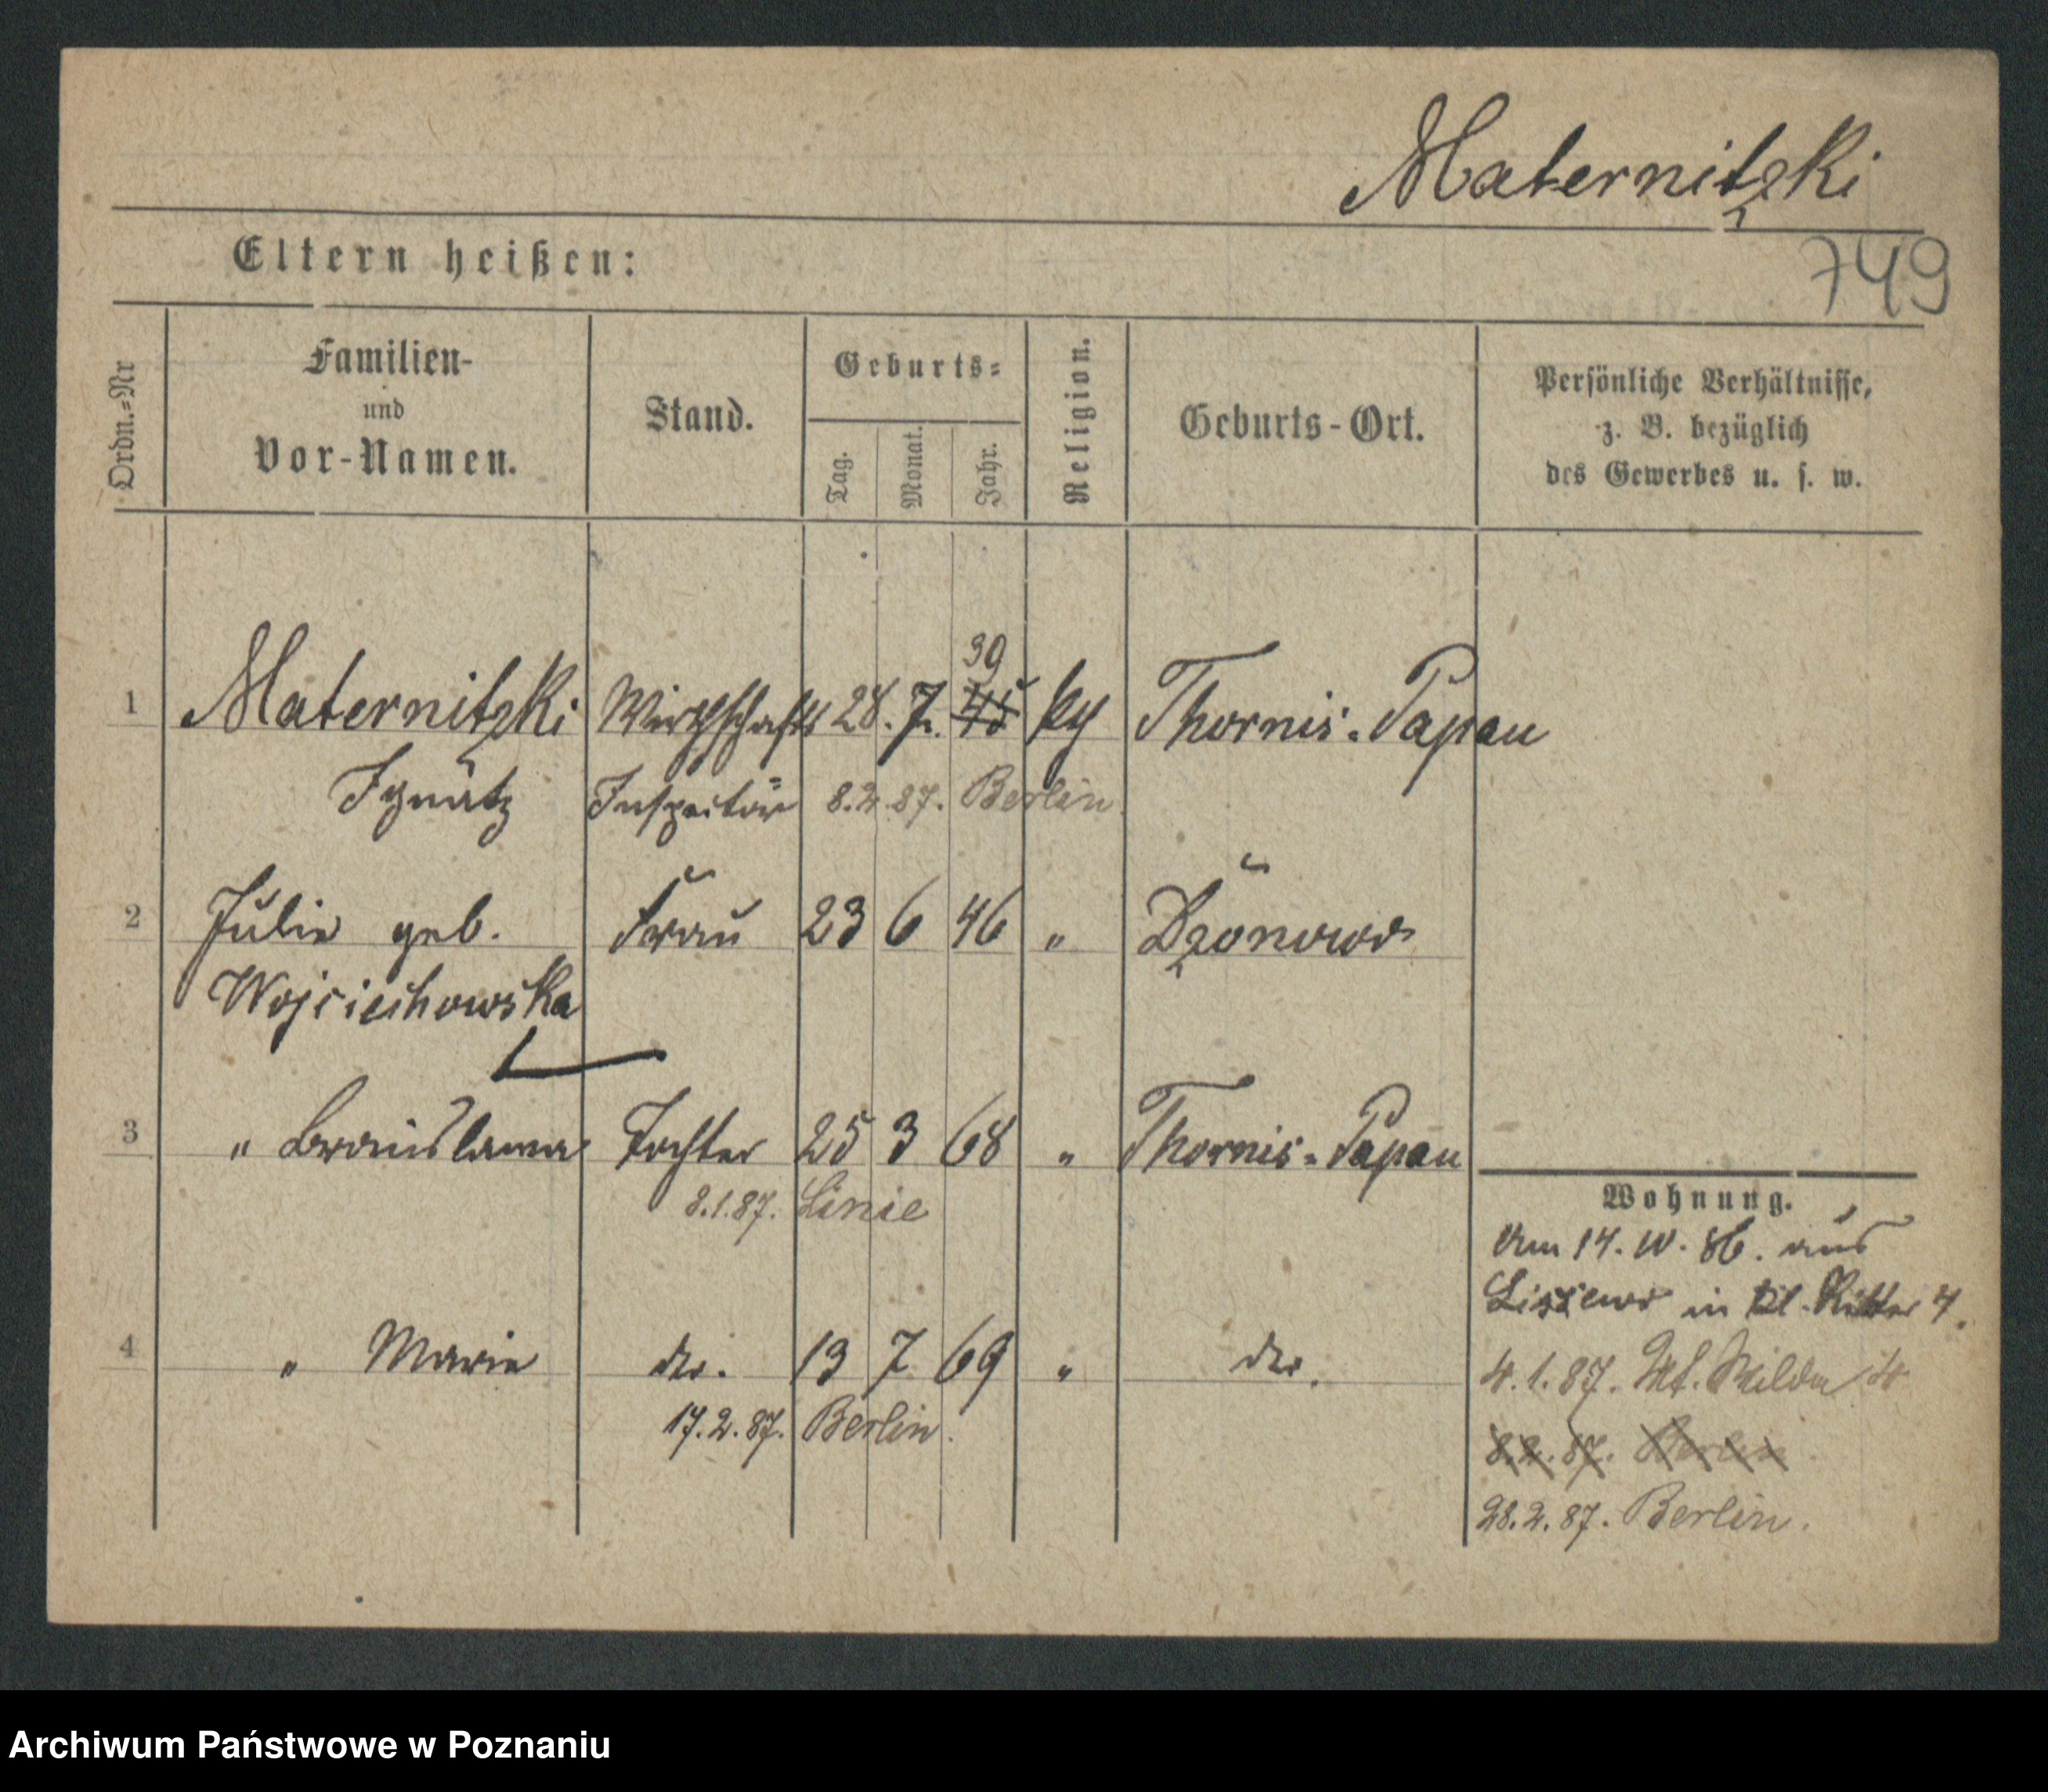 Maternitzki
749
Eltern heißen:
Ordn.=Nr
Familien-
und
Vor-Namen.
Stand.
Geburts=
Tag.
Monat.
Jahr.
Religion.
Geburts-Ort.
Persönliche Verhältnisse,
z. B. bezüglich
des Gewerbes u. s. w.
39
1 Maternitzki Wirthschafts 28. 7. 45 Thornis. Papau
Ignatz Inspector 8.2.87. Berlin.
2 Julie geb. Frau 23 6 46 "
Wojciechowska
3 " Bronislawa Tochter 25 3 68 " Thornis. Papau
8.1.87. Linie
Wohnung.
Am 14. 10. 86. aus
in Kl. Ritter 4.
4 " Marie do. 13 7 69 " do.
4.1.87. Wilda 4
17.2.87. Berlin.
8.2.87. Berlin
28.2.87. Berlin.
Archiwum Państwowe w Poznaniu